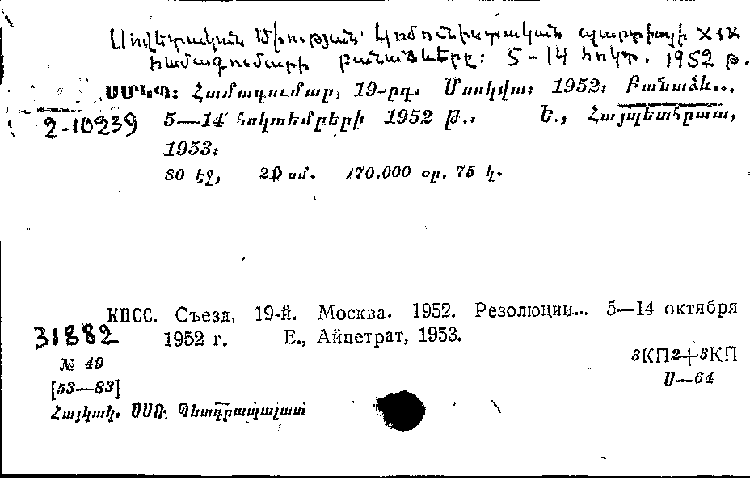 Սովետական Միության Կոմունիստական պարտիայի XIX
համագումարի բանաձևերը: 5-14 հոկտ. 1952 թ.
ՍՄԿԿ: Համագումար, 19-րդ. Մոսկվա: 1952: Բանաձև...
2-10239 5—14 հոկտեմբերի 1952 թ.: Ե., Հայպետհրատ,
1953:
80 էջ, 20 սմ. 170.000 օր. 75 կ.
КПСС. Съезд, 19-й. Москва. 1952. Резолюции... 5—14 октября
31882 1952 г. Е., Айпетрат, 1953.
№ 49 3КП2+3КП
[53—83] Ս—64
Հայկակ. ՍՍՌ Պետգրապալատ